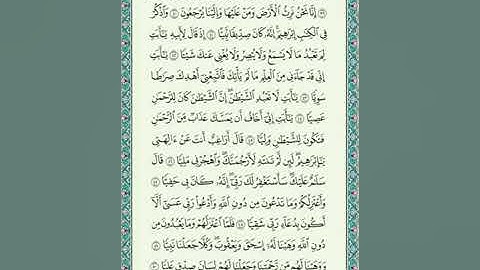 ٣٩ إِنَّا نَحْنُ نَرِثُ الْأَرْضَ وَمَنْ عَلَيْهَا وَإِلَيْنَا يُرْجَعُونَ ٤٠ وَاذْكُرْ
فِي الْكِتَابِ إِبْرَاهِيمَ إِنَّهُ كَانَ صِدِّيقًا نَّبِيًّا ٤١ إِذْ قَالَ لِأَبِيهِ يَا أَبَتِ
لِمَ تَعْبُدُ مَا لَا يَسْمَعُ وَلَا يُبْصِرُ وَلَا يُغْنِي عَنكَ شَيْئًا ٤٢ يَا أَبَتِ
إِنِّي قَدْ جَاءَنِي مِنَ الْعِلْمِ مَا لَمْ يَأْتِكَ فَاتَّبِعْنِي أَهْدِكَ صِرَاطًا
سَوِيًّا ٤٣ يَا أَبَتِ لَا تَعْبُدِ الشَّيْطَانَ إِنَّ الشَّيْطَانَ كَانَ لِلرَّحْمَٰنِ
عَصِيًّا ٤٤ يَا أَبَتِ إِنِّي أَخَافُ أَن يَمَسَّكَ عَذَابٌ مِّنَ الرَّحْمَٰنِ
فَتَكُونَ لِلشَّيْطَانِ وَلِيًّا ٤٥ قَالَ أَرَاغِبٌ أَنتَ عَنْ آلِهَتِي
يَا إِبْرَاهِيمُ لَئِن لَّمْ تَنتَهِ لَأَرْجُمَنَّكَ وَاهْجُرْنِي مَلِيًّا ٤٦ قَالَ
سَلَامٌ عَلَيْكَ سَأَسْتَغْفِرُ لَكَ رَبِّي إِنَّهُ كَانَ بِي حَفِيًّا ٤٧
وَأَعْتَزِلُكُمْ وَمَا تَدْعُونَ مِن دُونِ اللَّهِ وَأَدْعُو رَبِّي عَسَىٰ أَلَّا
أَكُونَ بِدُعَاءِ رَبِّي شَقِيًّا ٤٨ فَلَمَّا اعْتَزَلَهُمْ وَمَا يَعْبُدُونَ مِن
دُونِ اللَّهِ وَهَبْنَا لَهُ إِسْحَاقَ وَيَعْقُوبَ وَكُلًّا جَعَلْنَا نَبِيًّا ٤٩
وَوَهَبْنَا لَهُم مِّن رَّحْمَتِنَا وَجَعَلْنَا لَهُمْ لِسَانَ صِدْقٍ عَلِيًّا ٥٠